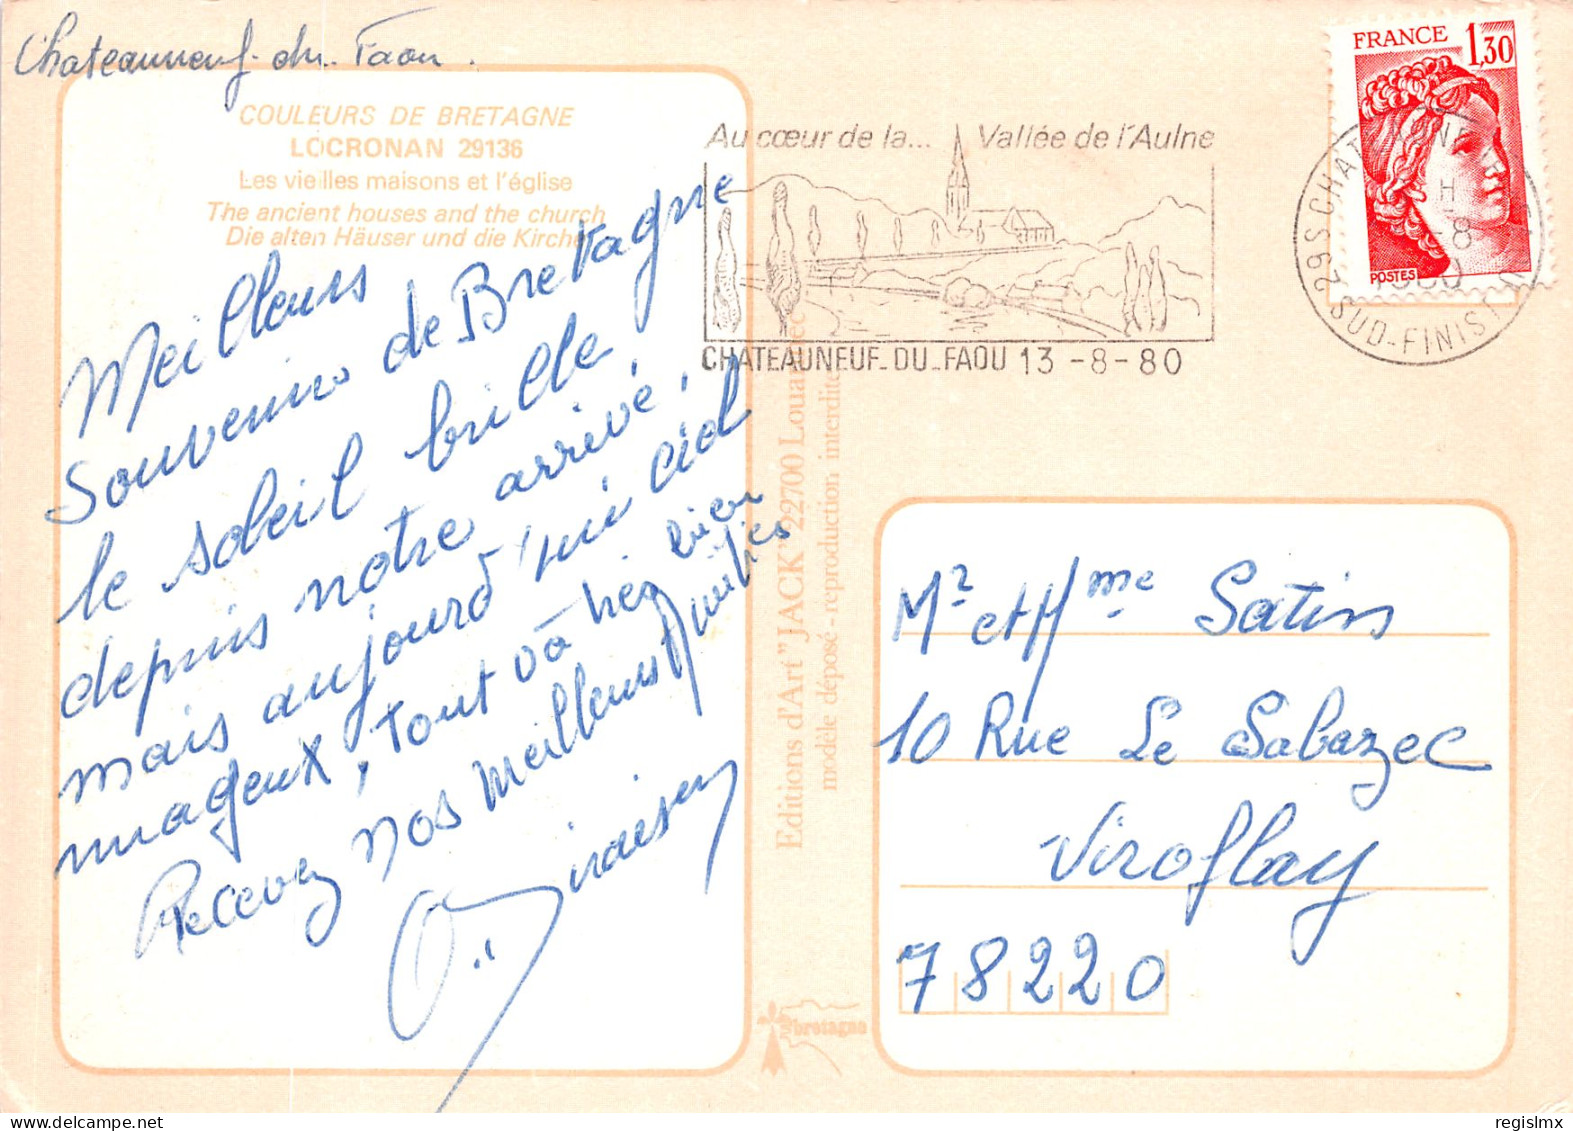 Chateauneuf-du-Faou.
COULEURS DE BRETAGNE
LOCRONAN 29136
Les vieilles maisons et l'église
The ancient houses and the church
Die alten Häuser und die Kirche
Meilleurs
Souvenirs de Bretagne
le soleil brille,
depuis notre arrivé,
mais aujourd'hui ciel
nuageux, tout va très bien
Recevez nos meilleurs Amitiés
Editions d'Art "JACK" 22700 Louannec
modèle déposé - reproduction interdite
bretagne
Au cœur de la... Vallée de l'Aulne
CHATEAUNEUF_DU_FAOU 13 -8-80
FRANCE 1,30
POSTES
29S CHATEAUNEUF
H
-8
1980
SUD-FINISTERE
Mr et Mme Satin
10 Rue Le Sabazec
Viroflay
78220
regislmx